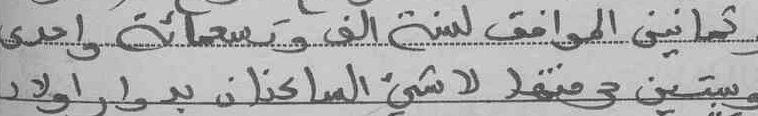 وثمانين الموافق لسنة الف وتسعمائة واحدى
وستين حرفتها لا شيئ الساكنان بدوار اولاد